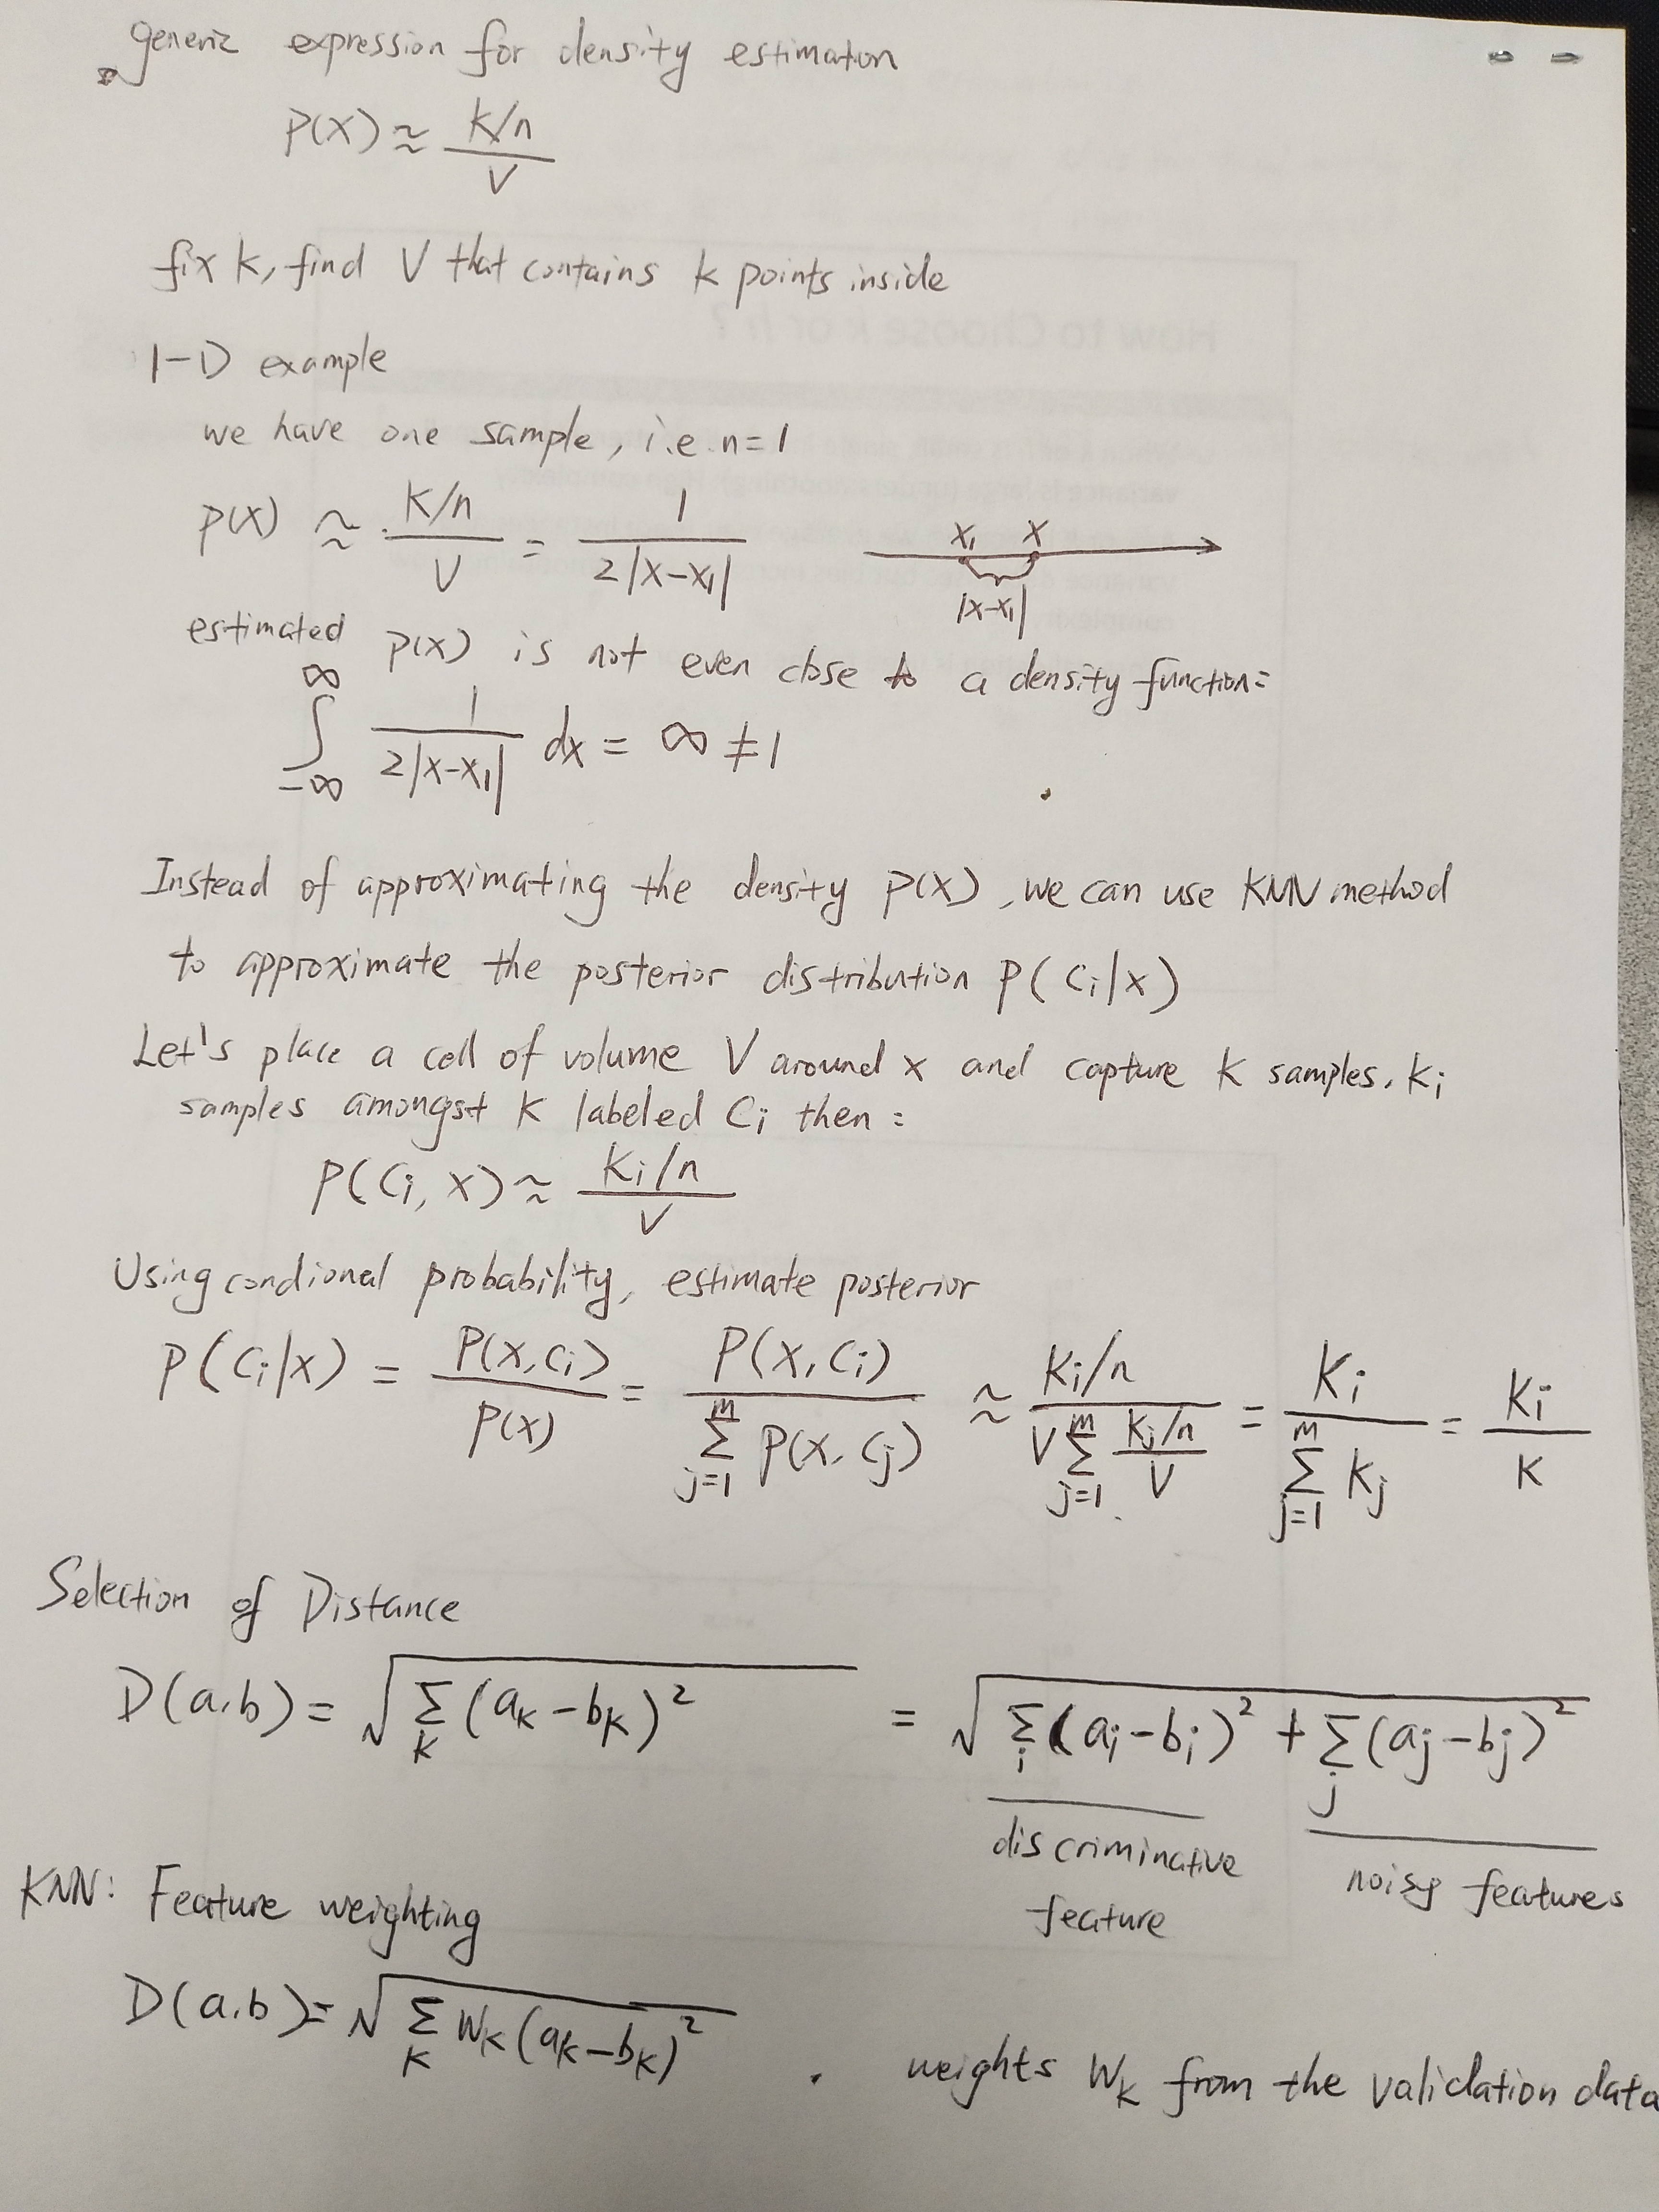 generic expression for density estimaton
P(X) ≈ (K/n) / V
fix k, find V that contains k points inside
1-D example
we have one sample, i.e. n=1
P(X) ≈ (K/n) / V = 1 / (2|X-X₁|)
X₁ X
|X-X₁|
estimated P(X) is not even close to a density function:
∫_{-∞}^{∞} 1 / (2|X-X₁|) dx = ∞ ≠ 1
Instead of approximating the density P(X), we can use KNN method
to approximate the posterior distribution P(Ci|X)
Let's place a cell of volume V around x and capture K samples, Ki
samples amongst K labeled Ci then:
P(Ci, X) ≈ (Ki/n) / V
Using condional probability, estimate posterior
P(Ci|X) = P(X,Ci) / P(X) = P(X,Ci) / Σ_{j=1}^{m} P(X,Cj) ≈ (Ki/n) / (V Σ_{j=1}^{m} (Kj/n)/V) = Ki / Σ_{j=1}^{m} Kj = Ki / K
Selection of Distance
D(a,b) = √(Σ_K (aK-bK)²) = √(Σ_i (ai-bi)² + Σ_j (aj-bj)²)
discriminative feature
noisy features
KNN: Feature weighting
D(a,b) = √(Σ_K WK(aK-bK)²) . weights WK from the validation data
How to Choose k or h?